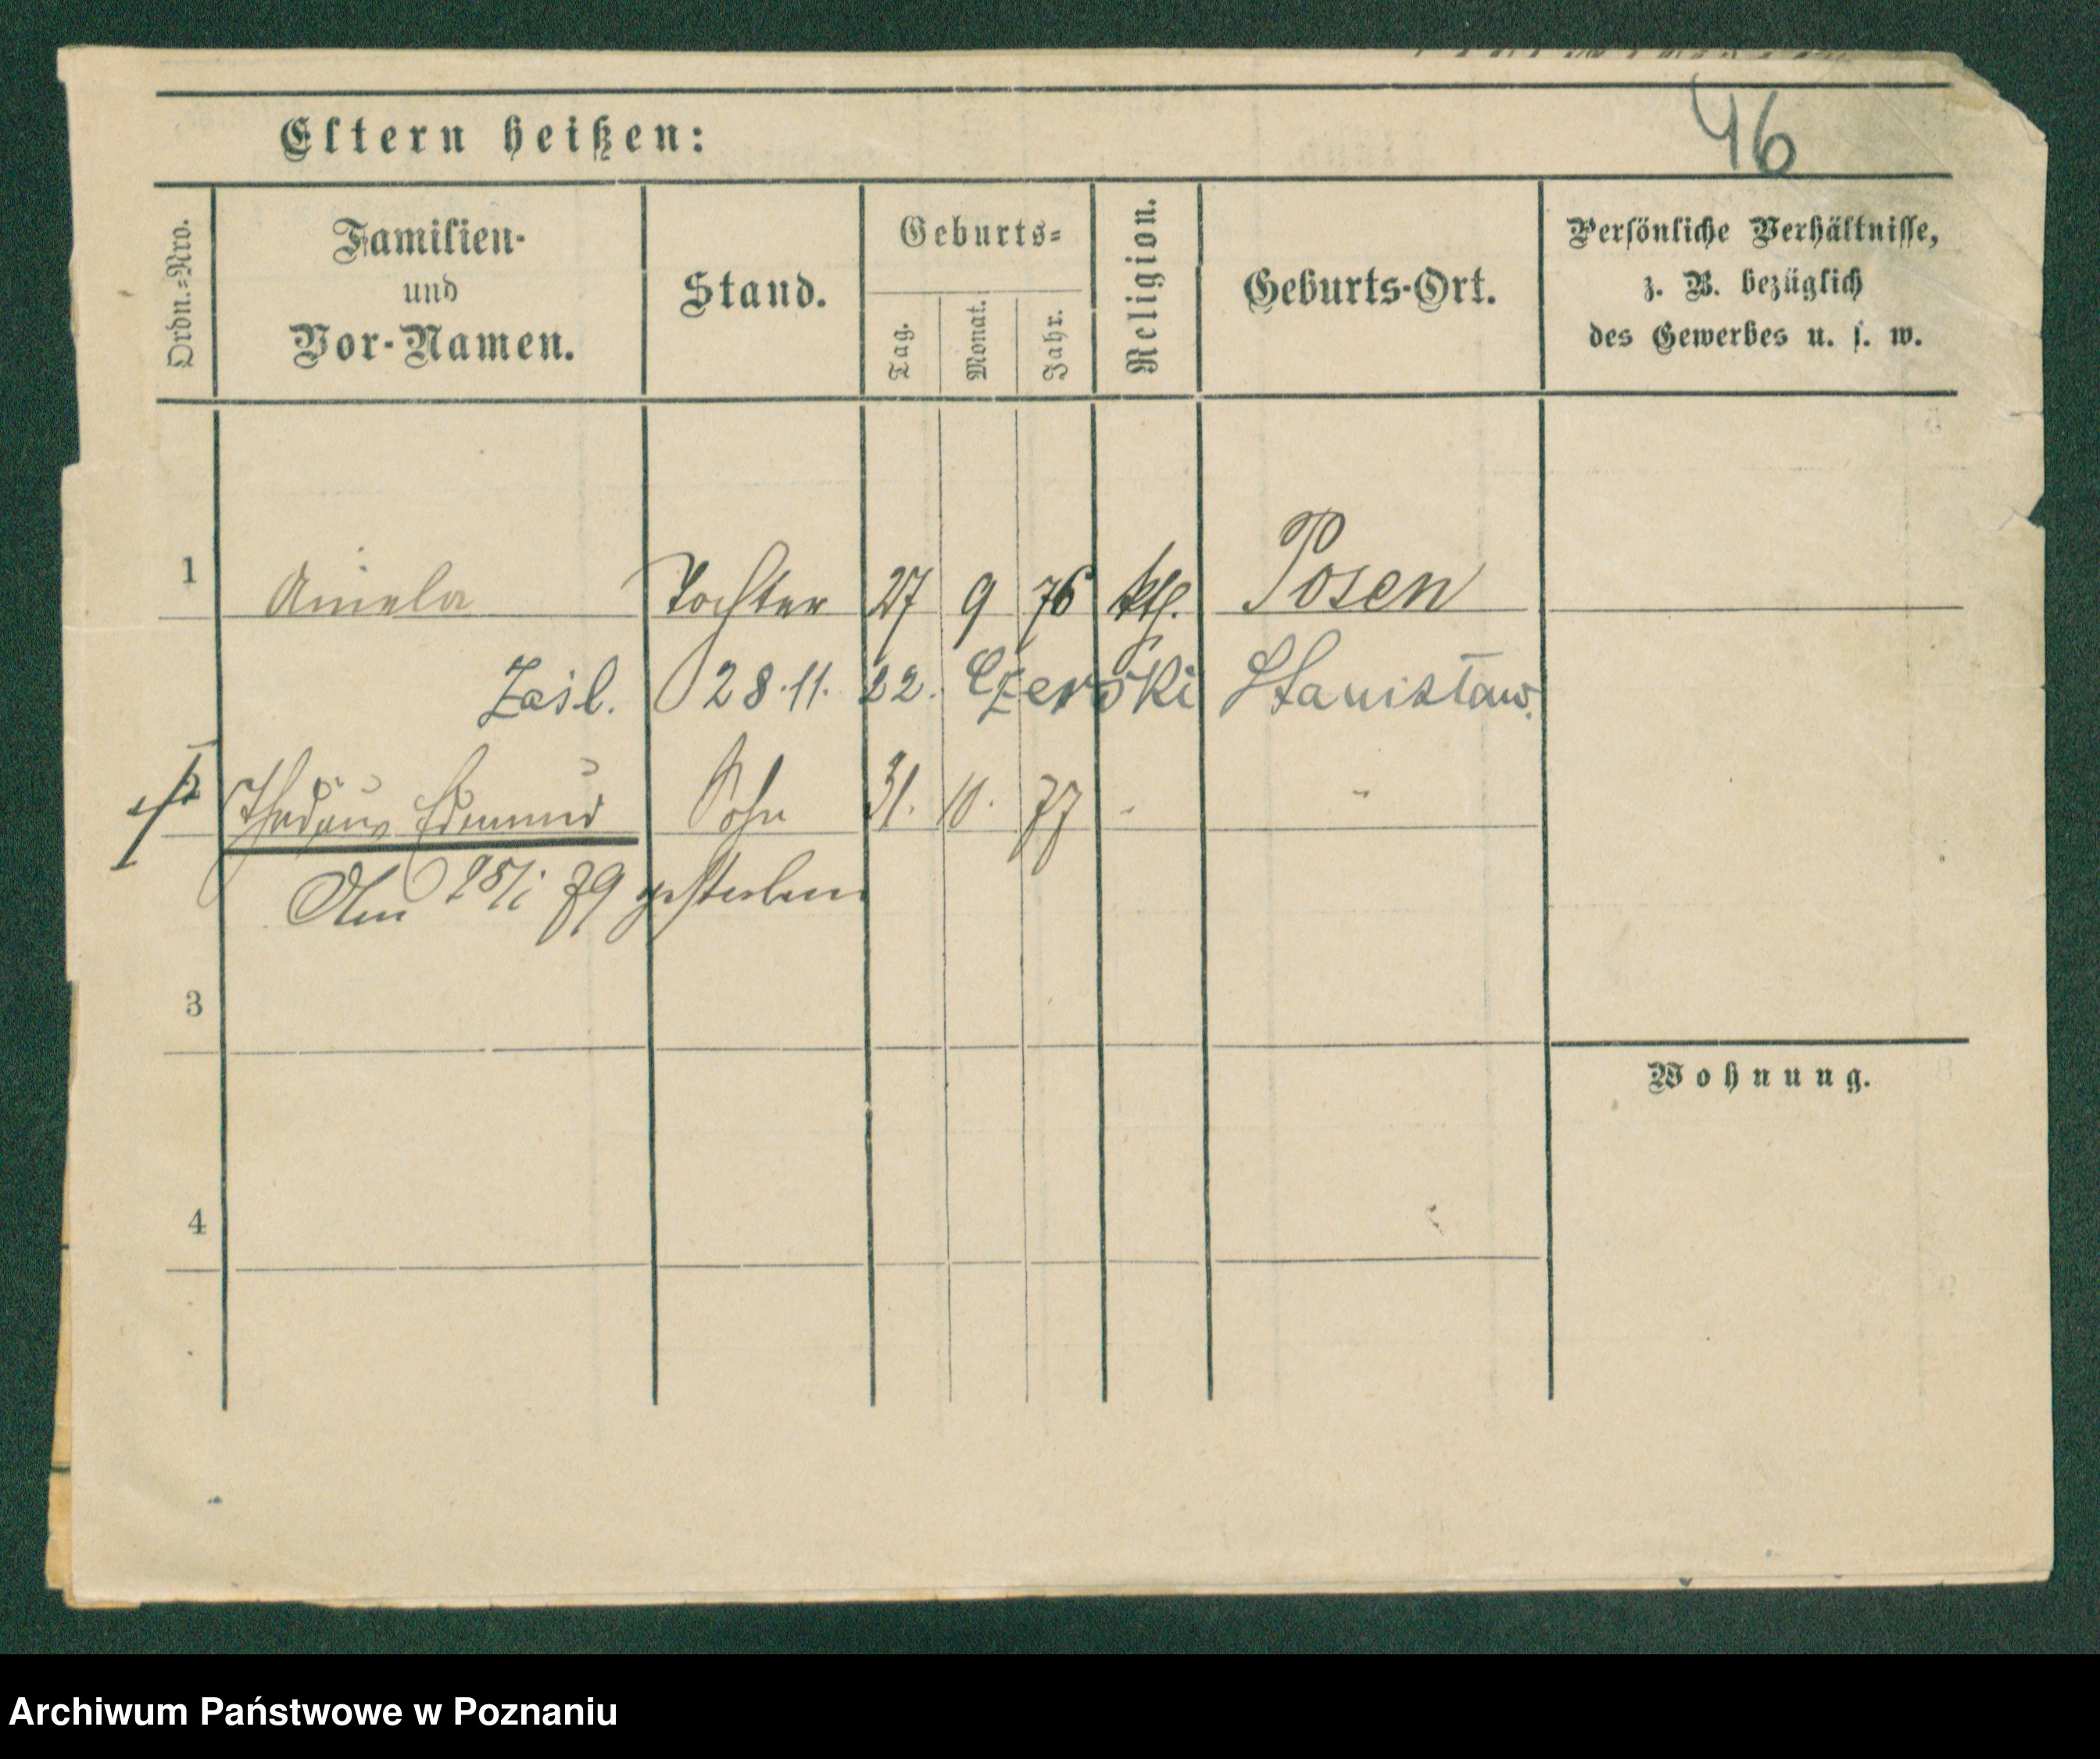 46
Eltern heißen:
Ordn.=Nro.
Familien-
und
Vor-Namen.
Stand.
Geburts=
Tag.
Monat.
Jahr.
Religion.
Geburts-Ort.
Persönliche Verhältnisse,
z. B. bezüglich
des Gewerbes u. s. w.
1 Aniela Tochter 27 9 76 kth. Posen
Zaśl. 28.11.22. Czerski Stanisław.
2 Thadäus Edmund Sohn 31. 10. 77 - -
Am 28/1 79 gestorben
3
Wohnung.
4
Archiwum Państwowe w Poznaniu